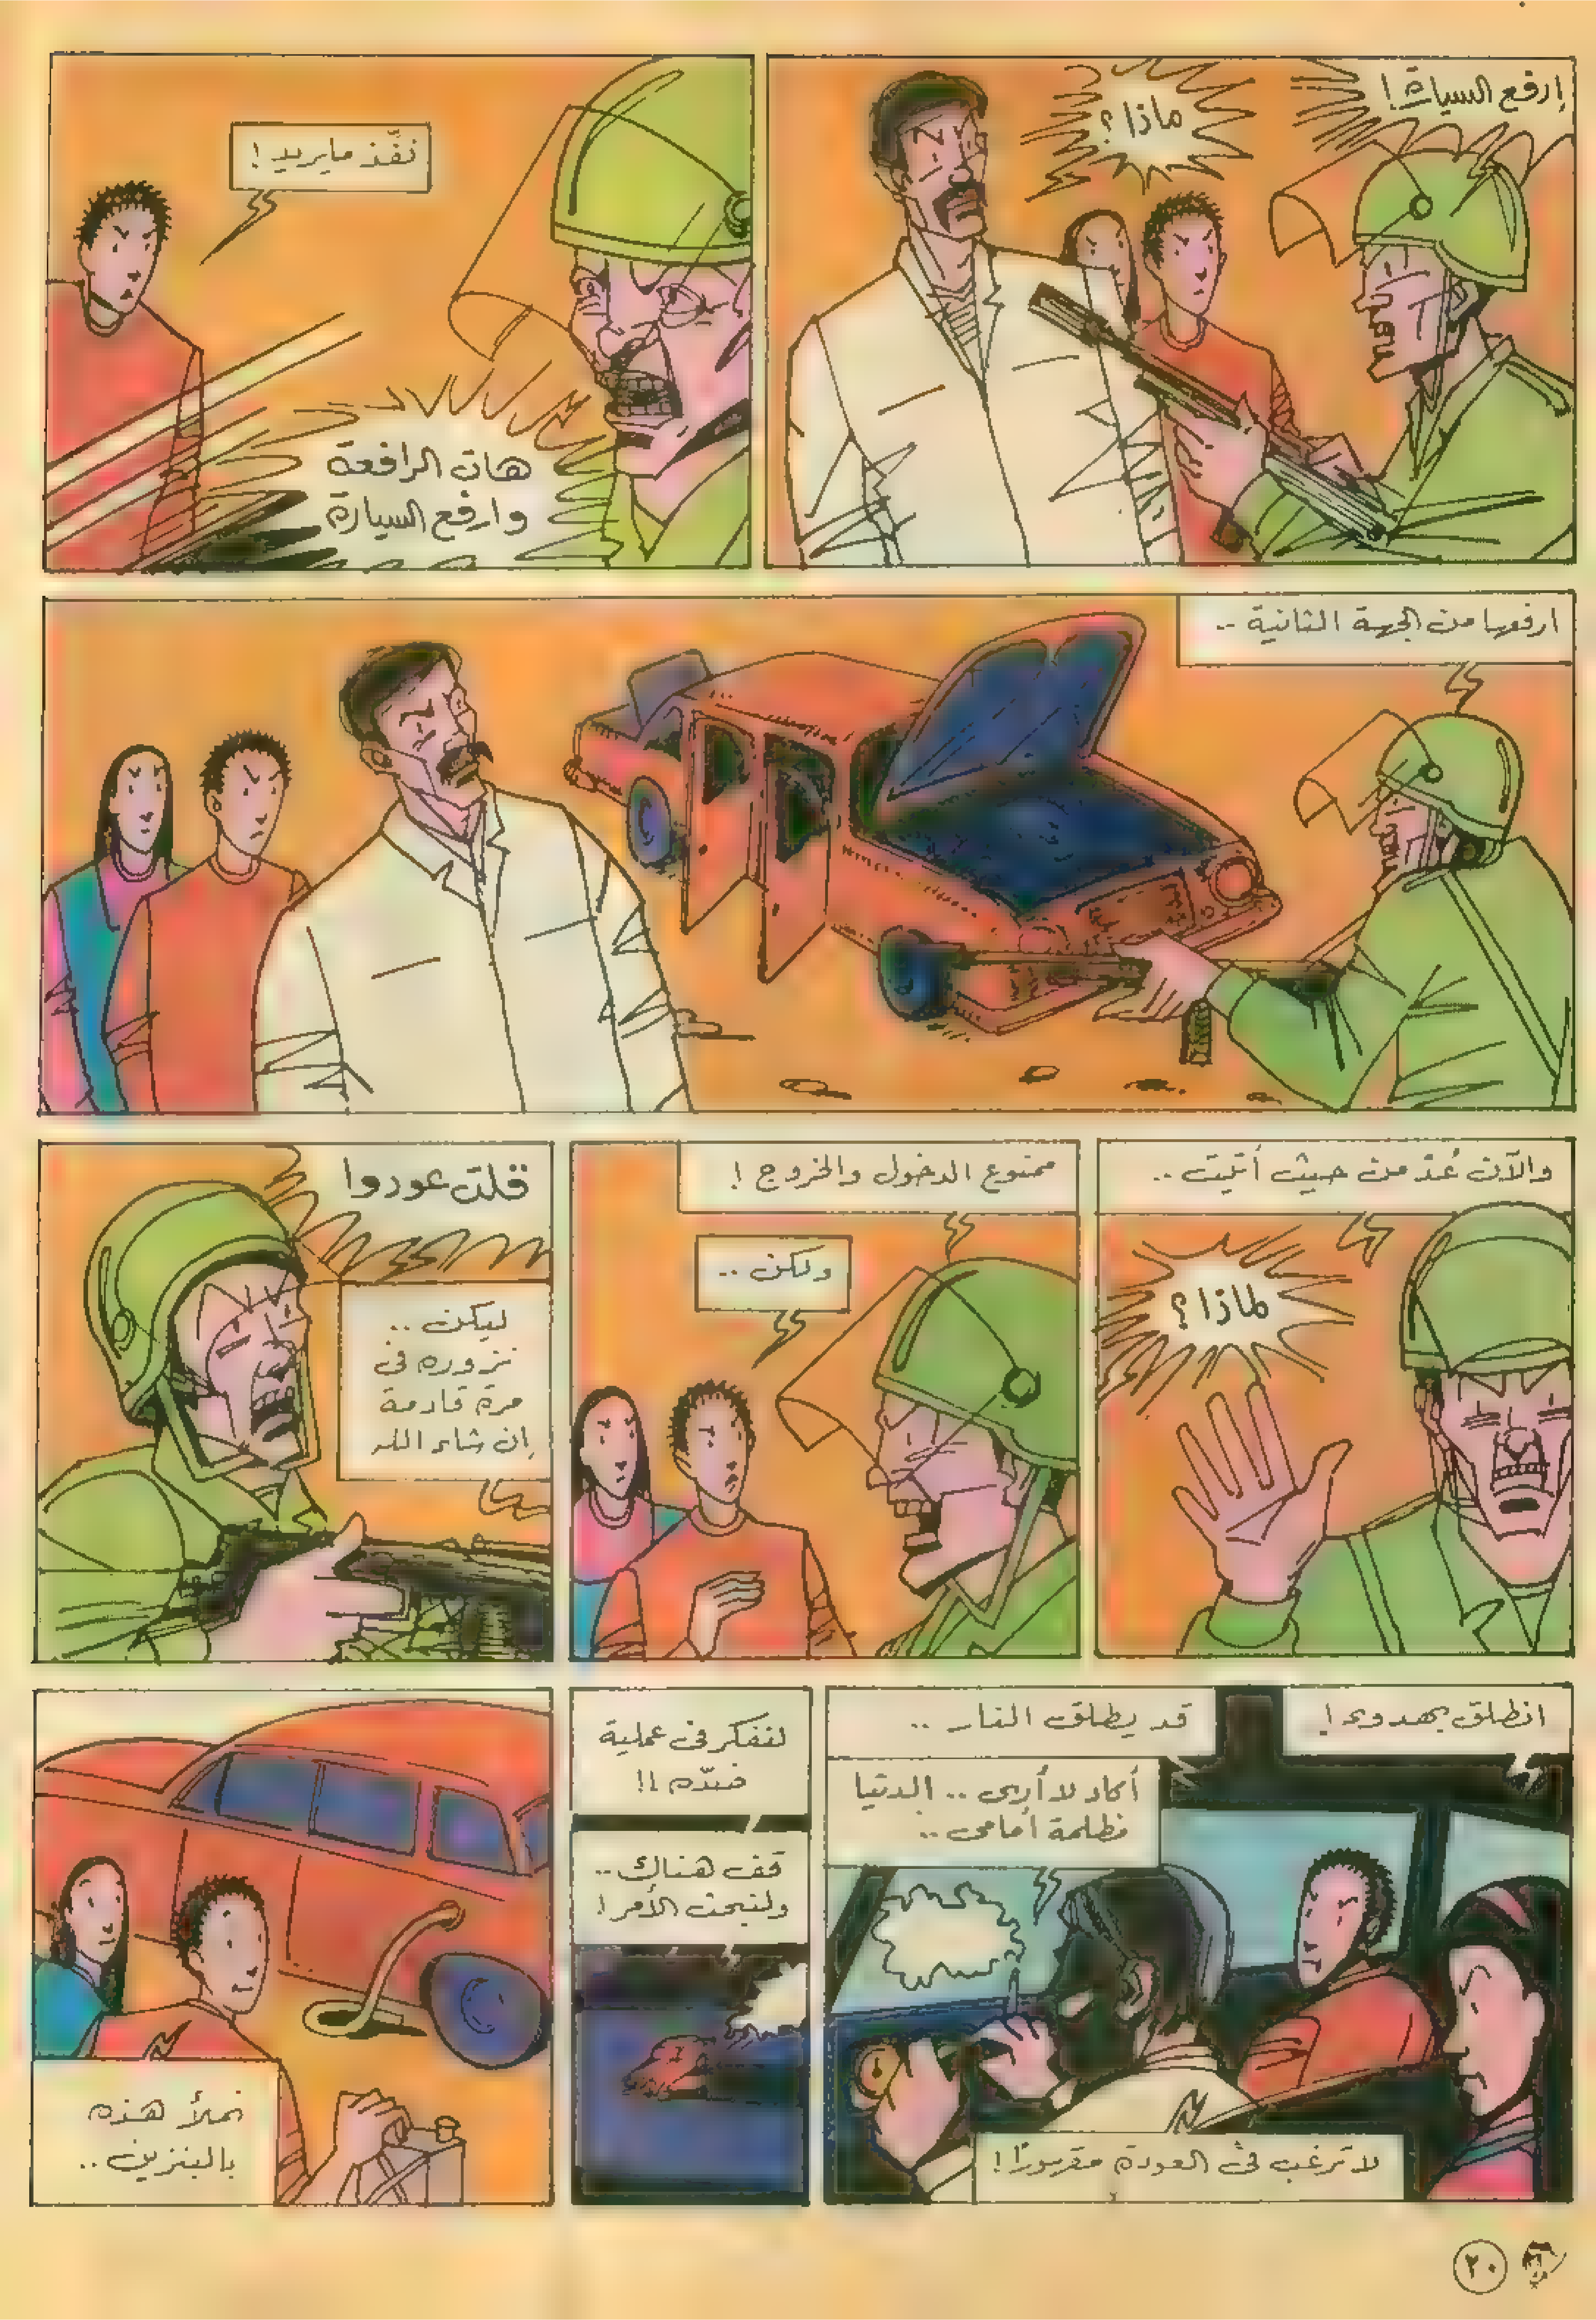 إرفع السيارة!
ماذا؟
نفّذ ما يريد!
هات الرافعة
وارفع السيارة
ارفعها من الجهة الثانية ..
والآن عُد من حيث أتيت ..
لماذا؟
ممنوع الدخول والخروج!
ولكن ..
قلت عودوا
ليكن ..
نزوره في
مرة قادمة
إن شاء الله
انطلق بهدوء!
قد يطلق النار ..
أكاد لا أرى .. الدنيا
مظلمة أمامي ..
لا ترغب في العودة مقهورًا!
لنفكر في عملية
ضدّهم !!
قف هناك ..
ولنبحث الأمر!
نملأ هذه
بالبنزين ..
٢٠